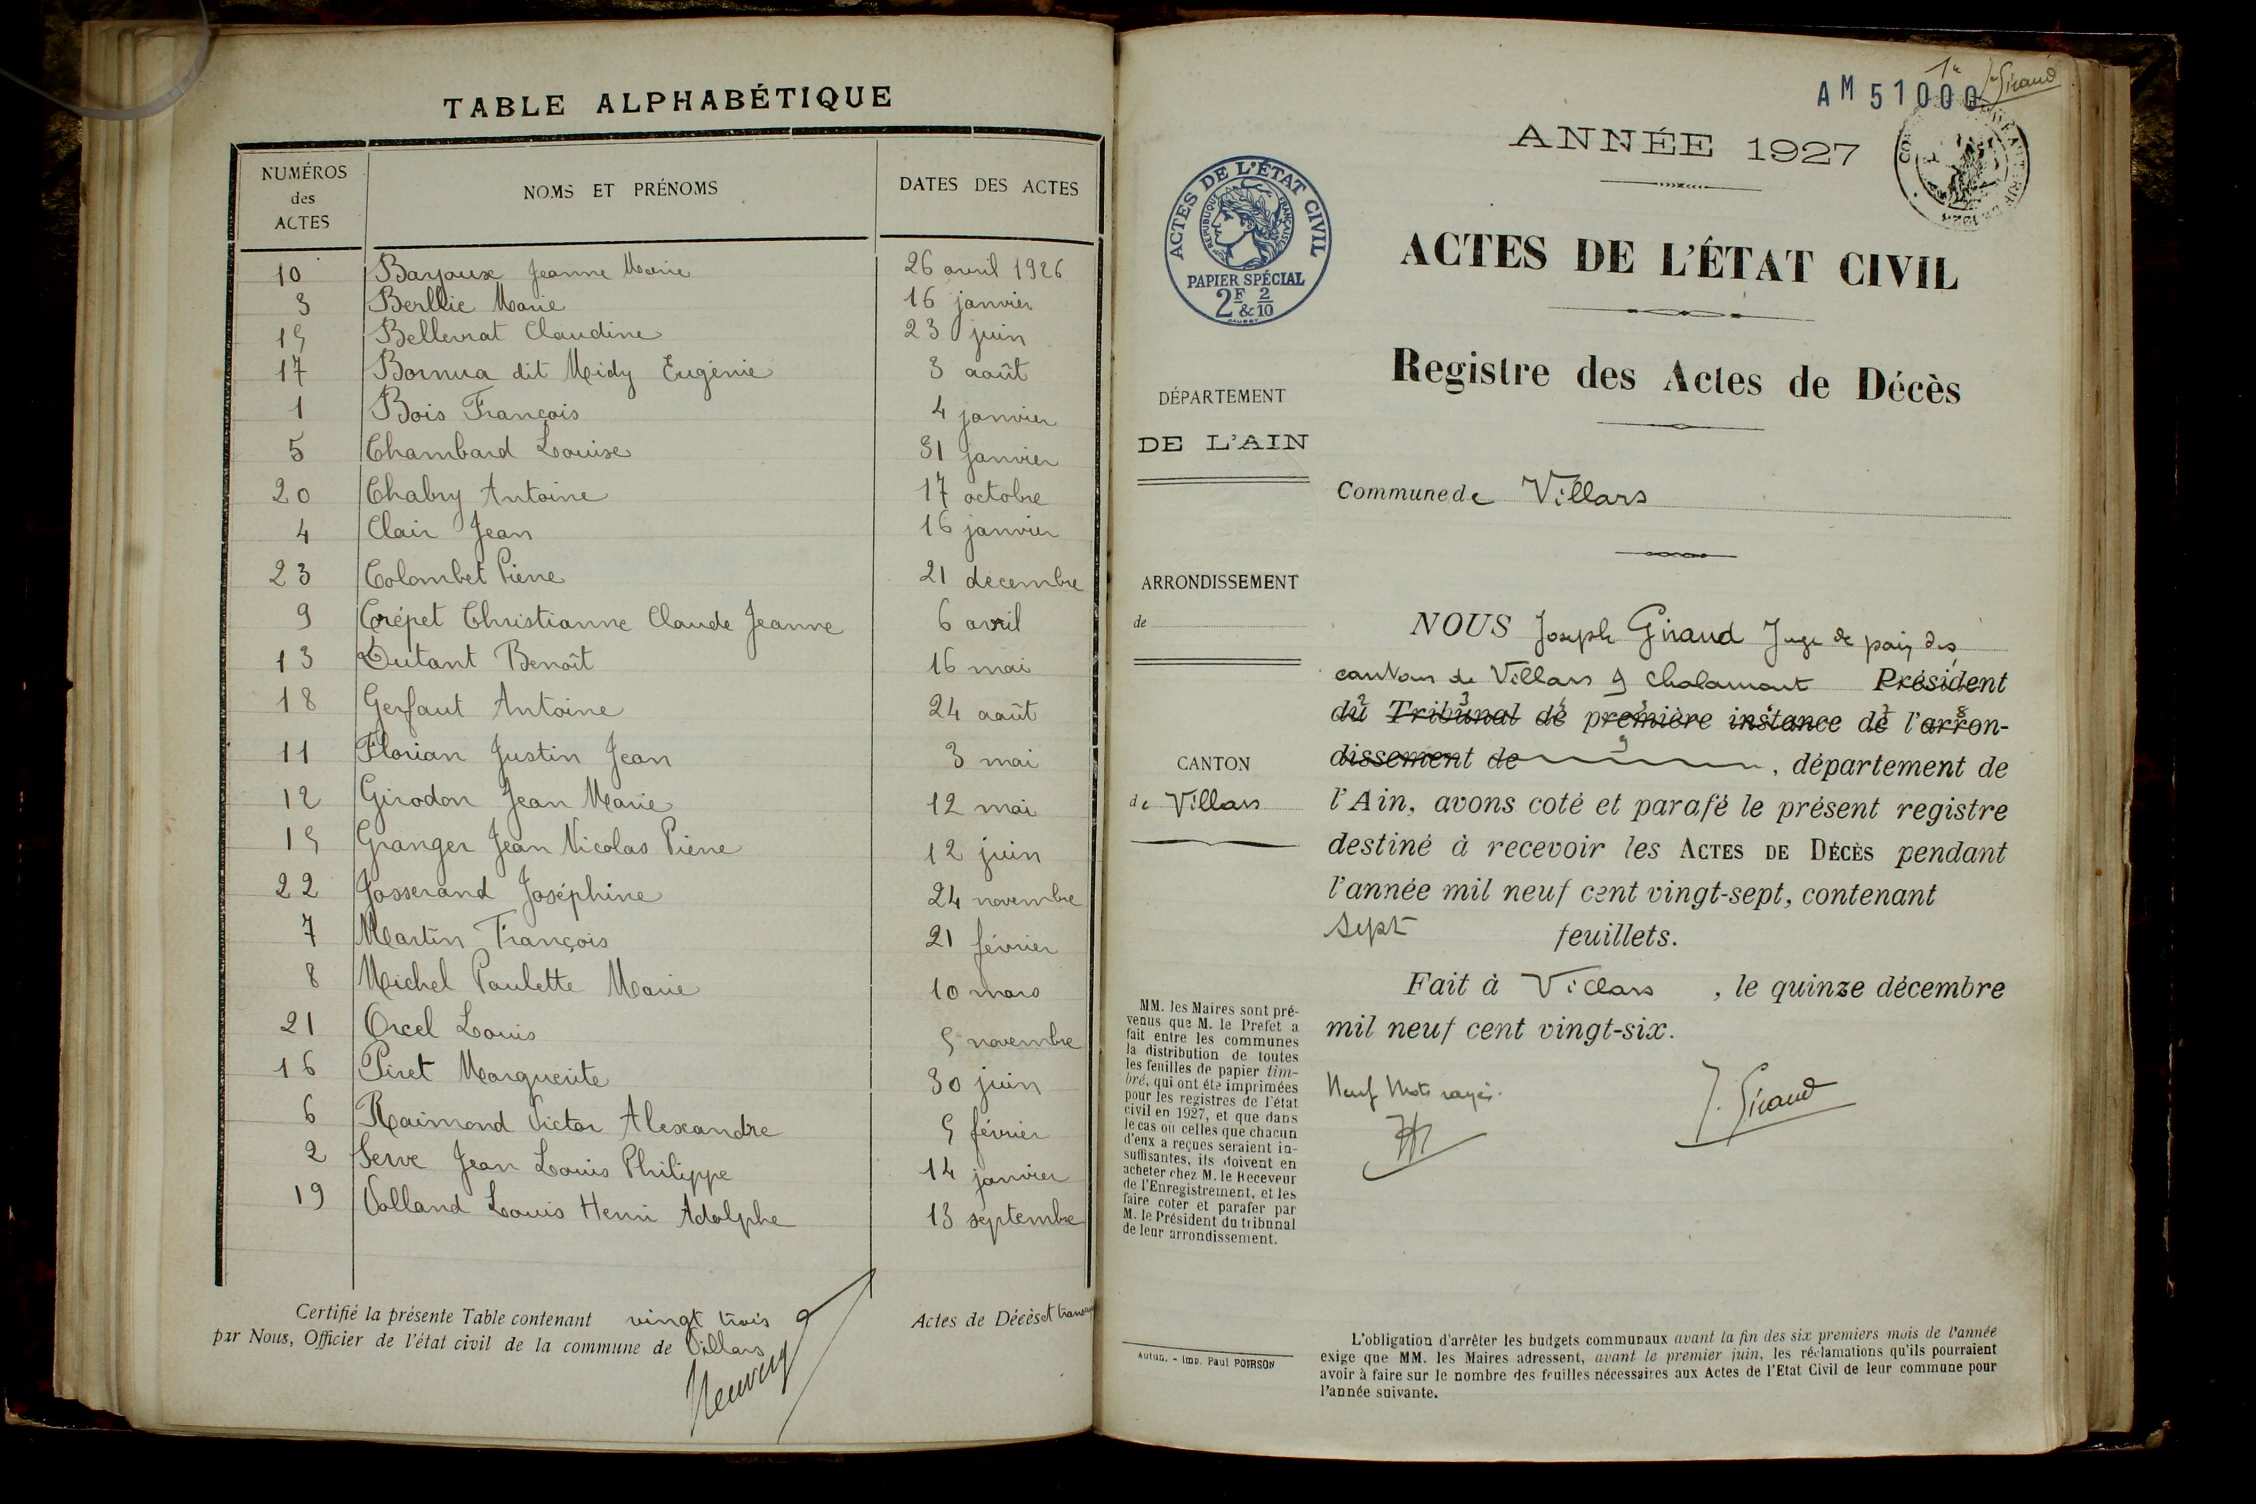 TABLE ALPHABÉTIQUE
NUMÉROS des ACTES NOMS ET PRÉNOMS DATES DES ACTES
10 Bayoux Jeanne Marie 26 avril 1926
3 Berllie Marie 16 janvier
15 Bellevrat Claudine 23 juin
17 Bornua dit Midy Eugénie 3 août
1 Bois François 4 janvier
5 Chambard Louise 31 janvier
20 Chabry Antoine 17 octobre
4 Clair Jean 16 janvier
23 Colombet Pierre 21 décembre
9 Crépet Christianne Claude Jeanne 6 avril
13 Dutant Benoît 16 mai
18 Gerfaut Antoine 24 août
11 Florian Justin Jean 3 mai
12 Girodon Jean Marie 12 mai
15 Granger Jean Nicolas Pierre 12 juin
22 Josserand Joséphine 24 novembre
7 Martin François 21 février
8 Michel Paulette Marie 10 mars
21 Orcel Louis 5 novembre
16 Piret Marguerite 30 juin
6 Raimond Victor Alexandre 5 février
2 Serve Jean Louis Philippe 14 janvier
19 Volland Louis Henri Adolphe 13 septembre
Certifié la présente Table contenant vingt trois Actes de Décès et
par Nous, Officier de l'état civil de la commune de Villars
1er J. Giraud
AM 51000
ANNÉE 1927
ACTES DE L'ÉTAT CIVIL
RÉPUBLIQUE FRANÇAISE
PAPIER SPÉCIAL
2F & 2/10
ACTES DE L'ÉTAT CIVIL
Registre des Actes de Décès
DÉPARTEMENT
DE L'AIN
Commune de Villars
ARRONDISSEMENT
de
CANTON
de Villars
NOUS Joseph Giraud Juge de paix des
cantons de Villars & Chalamont Président
du Tribunal de première instance de l'arron-
dissement de , département de
l'Ain, avons coté et parafé le présent registre
destiné à recevoir les ACTES DE DÉCÈS pendant
l'année mil neuf cent vingt-sept, contenant
sept feuillets.
Fait à Villars , le quinze décembre
mil neuf cent vingt-six.
Neuf mots rayés.
J. Giraud
MM. les Maires sont pré-
venus que M. le Préfet a
fait entre les communes
la distribution de toutes
les feuilles de papier tim-
bré, qui ont été imprimées
pour les registres de l'état
civil en 1927, et que dans
le cas où celles que chacun
d'eux a reçues seraient in-
suffisantes, ils doivent en
acheter chez M. le Receveur
de l'Enregistrement, et les
faire coter et parafer par
M. le Président du tribunal
de leur arrondissement.
Autun. - Imp. Paul POIRSON
L'obligation d'arrêter les budgets communaux avant la fin des six premiers mois de l'année
exige que MM. les Maires adressent, avant le premier juin, les réclamations qu'ils pourraient
avoir à faire sur le nombre des feuilles nécessaires aux Actes de l'Etat Civil de leur commune pour
l'année suivante.